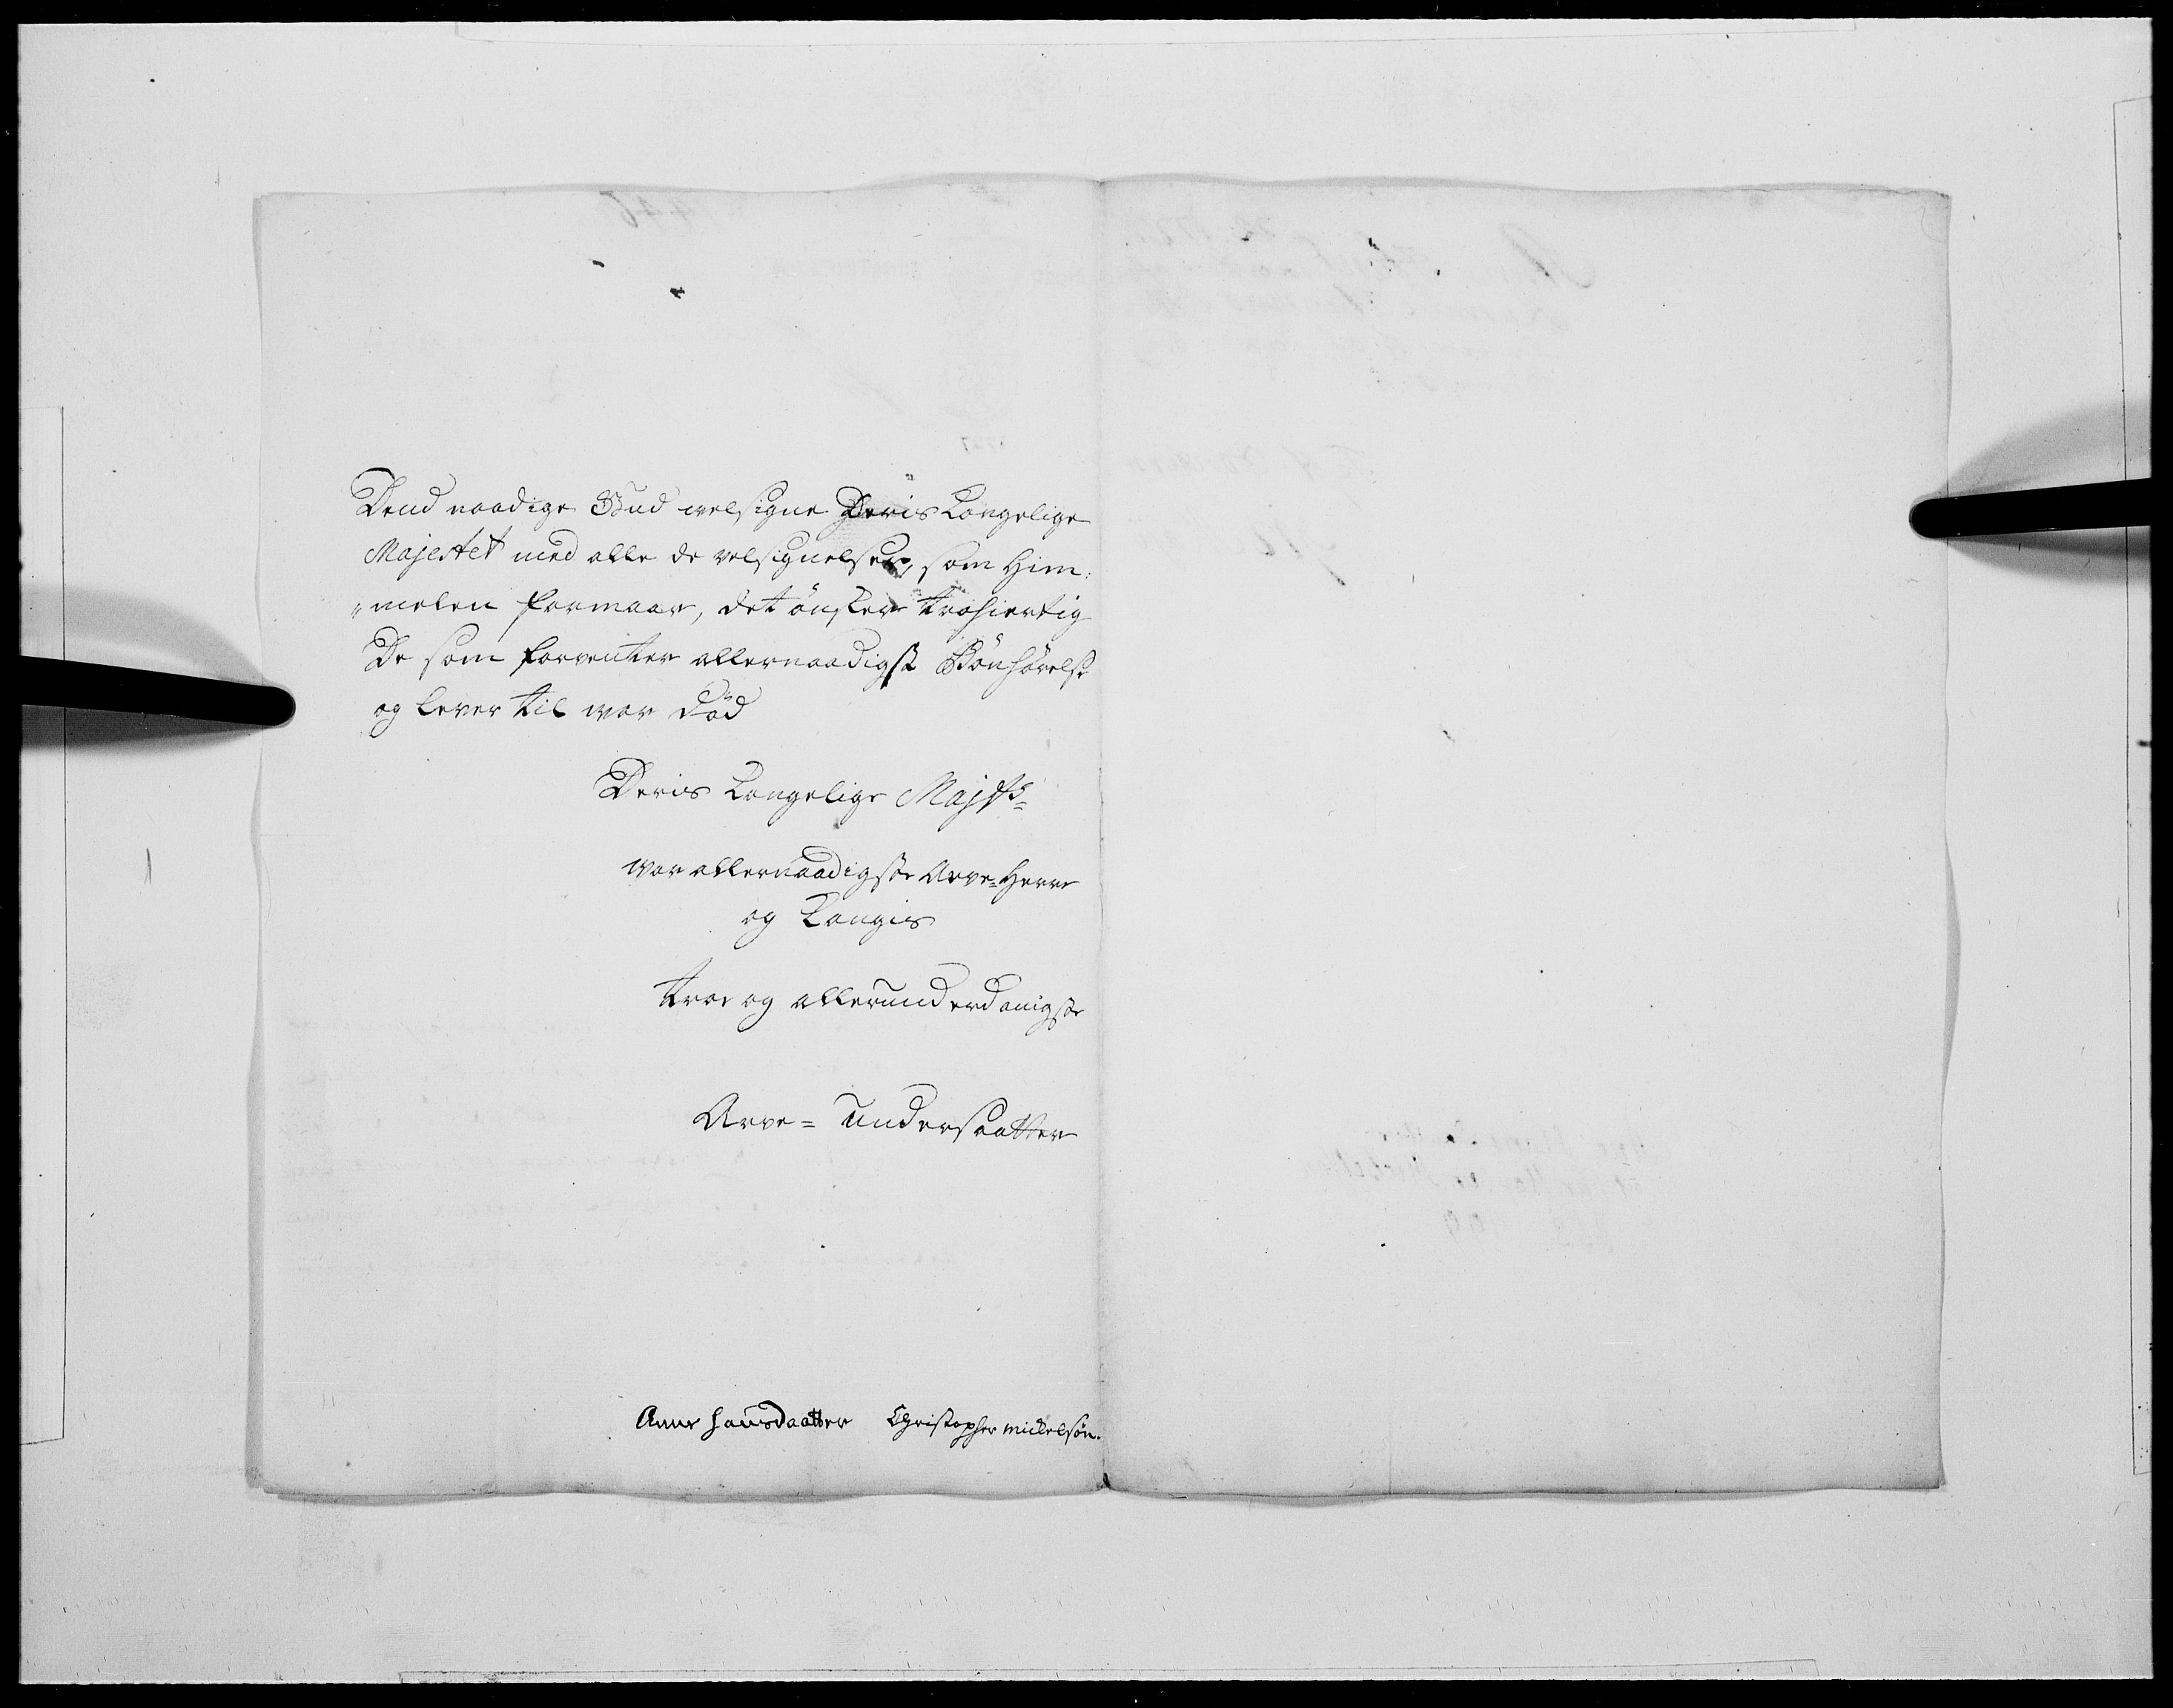 Dend naadige Gud welsigne Deris Kongelige
Majestet med alle de velsignelser, som Him:
„melen formaar, det ønsker trohiertig
De som forventer allernaadigst Bønhørelse
og lever til wor død
Deris Kongelige Majsts
wor allernaadigste Arve=Herre
og Kongis
troe og allerunderdanigste
Arve= Undersaatter
Anne Hansdaatter Christopher Mickelsøn.